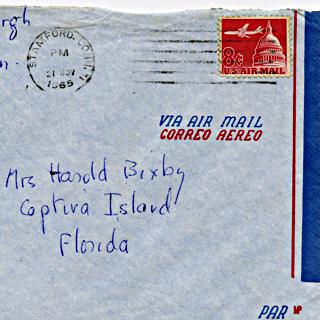 STAMFORD, CONN.
PM
21 NOV
1965
8¢
U.S. AIR MAIL
VIA AIR MAIL
CORREO AEREO
Mrs Harold Bixby
Captiva Island
Florida
PAR